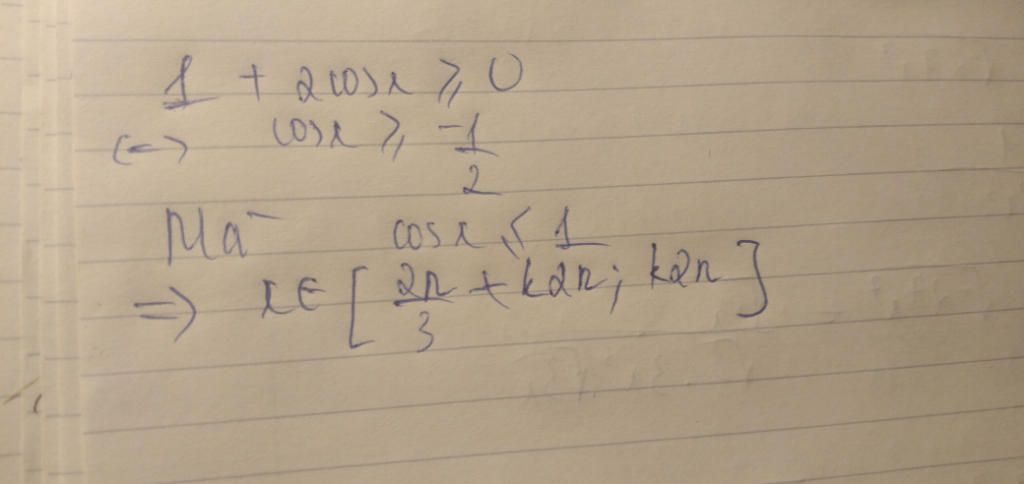 1 + 2cosx ⩾ 0
<=> cosx ⩾ -1/2
Mà cosx ⩽ 1
=> x ∈ [2π/3 + k2π; k2π]